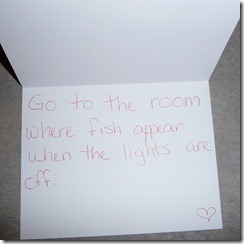 Go to the room
where fish appear
when the lights are
off.